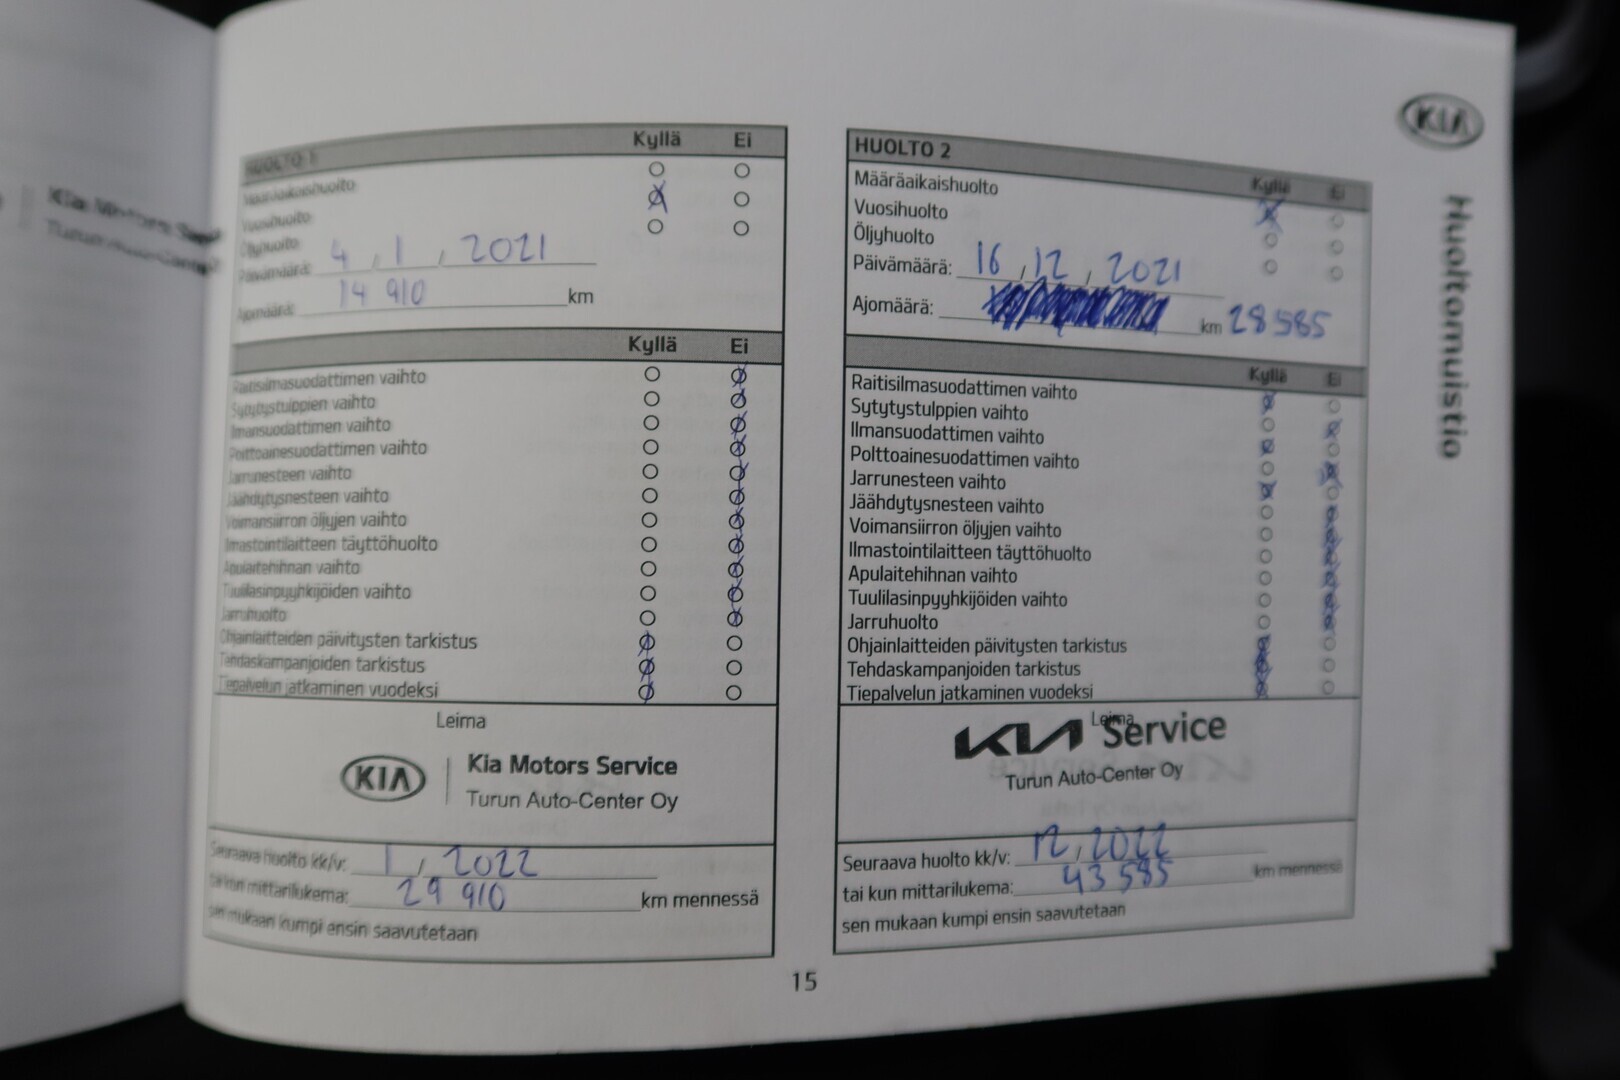 KIA
Huoltomuistio
Kia Motors
HUOLTO 1 Kyllä Ei
Määräaikaishuolto
Vuosihuolto
Öljyhuolto
Päivämäärä: 4, 1, 2021
Ajomäärä: 14 910 km
Kyllä Ei
Raitisilmasuodattimen vaihto
Sytytystulppien vaihto
Ilmansuodattimen vaihto
Polttoainesuodattimen vaihto
Jarrunesteen vaihto
Jäähdytysnesteen vaihto
Voimansiirron öljyjen vaihto
Ilmastointilaitteen täyttöhuolto
Apulaitehihnan vaihto
Tuulilasinpyyhkijöiden vaihto
Jarruhuolto
Ohjainlaitteiden päivitysten tarkistus
Tehdaskampanjoiden tarkistus
Tiepalvelun jatkaminen vuodeksi
Leima
KIA Kia Motors Service
Turun Auto-Center Oy
Seuraava huolto kk/v: 1, 2022
tai kun mittarilukema: 29 910 km mennessä
sen mukaan kumpi ensin saavutetaan
HUOLTO 2 Kyllä Ei
Määräaikaishuolto
Vuosihuolto
Öljyhuolto
Päivämäärä: 16, 12, 2021
Ajomäärä: km 28 585
Kyllä Ei
Raitisilmasuodattimen vaihto
Sytytystulppien vaihto
Ilmansuodattimen vaihto
Polttoainesuodattimen vaihto
Jarrunesteen vaihto
Jäähdytysnesteen vaihto
Voimansiirron öljyjen vaihto
Ilmastointilaitteen täyttöhuolto
Apulaitehihnan vaihto
Tuulilasinpyyhkijöiden vaihto
Jarruhuolto
Ohjainlaitteiden päivitysten tarkistus
Tehdaskampanjoiden tarkistus
Tiepalvelun jatkaminen vuodeksi
Leima
KIA Service
Turun Auto-Center Oy
Seuraava huolto kk/v: 12, 2022
tai kun mittarilukema: 43 585 km mennessä
sen mukaan kumpi ensin saavutetaan
15